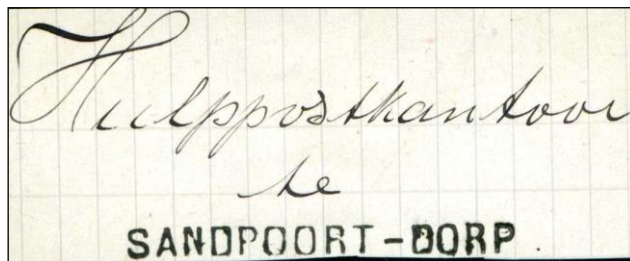 Hulppostkantoor
te
SANDPOORT-DORP.